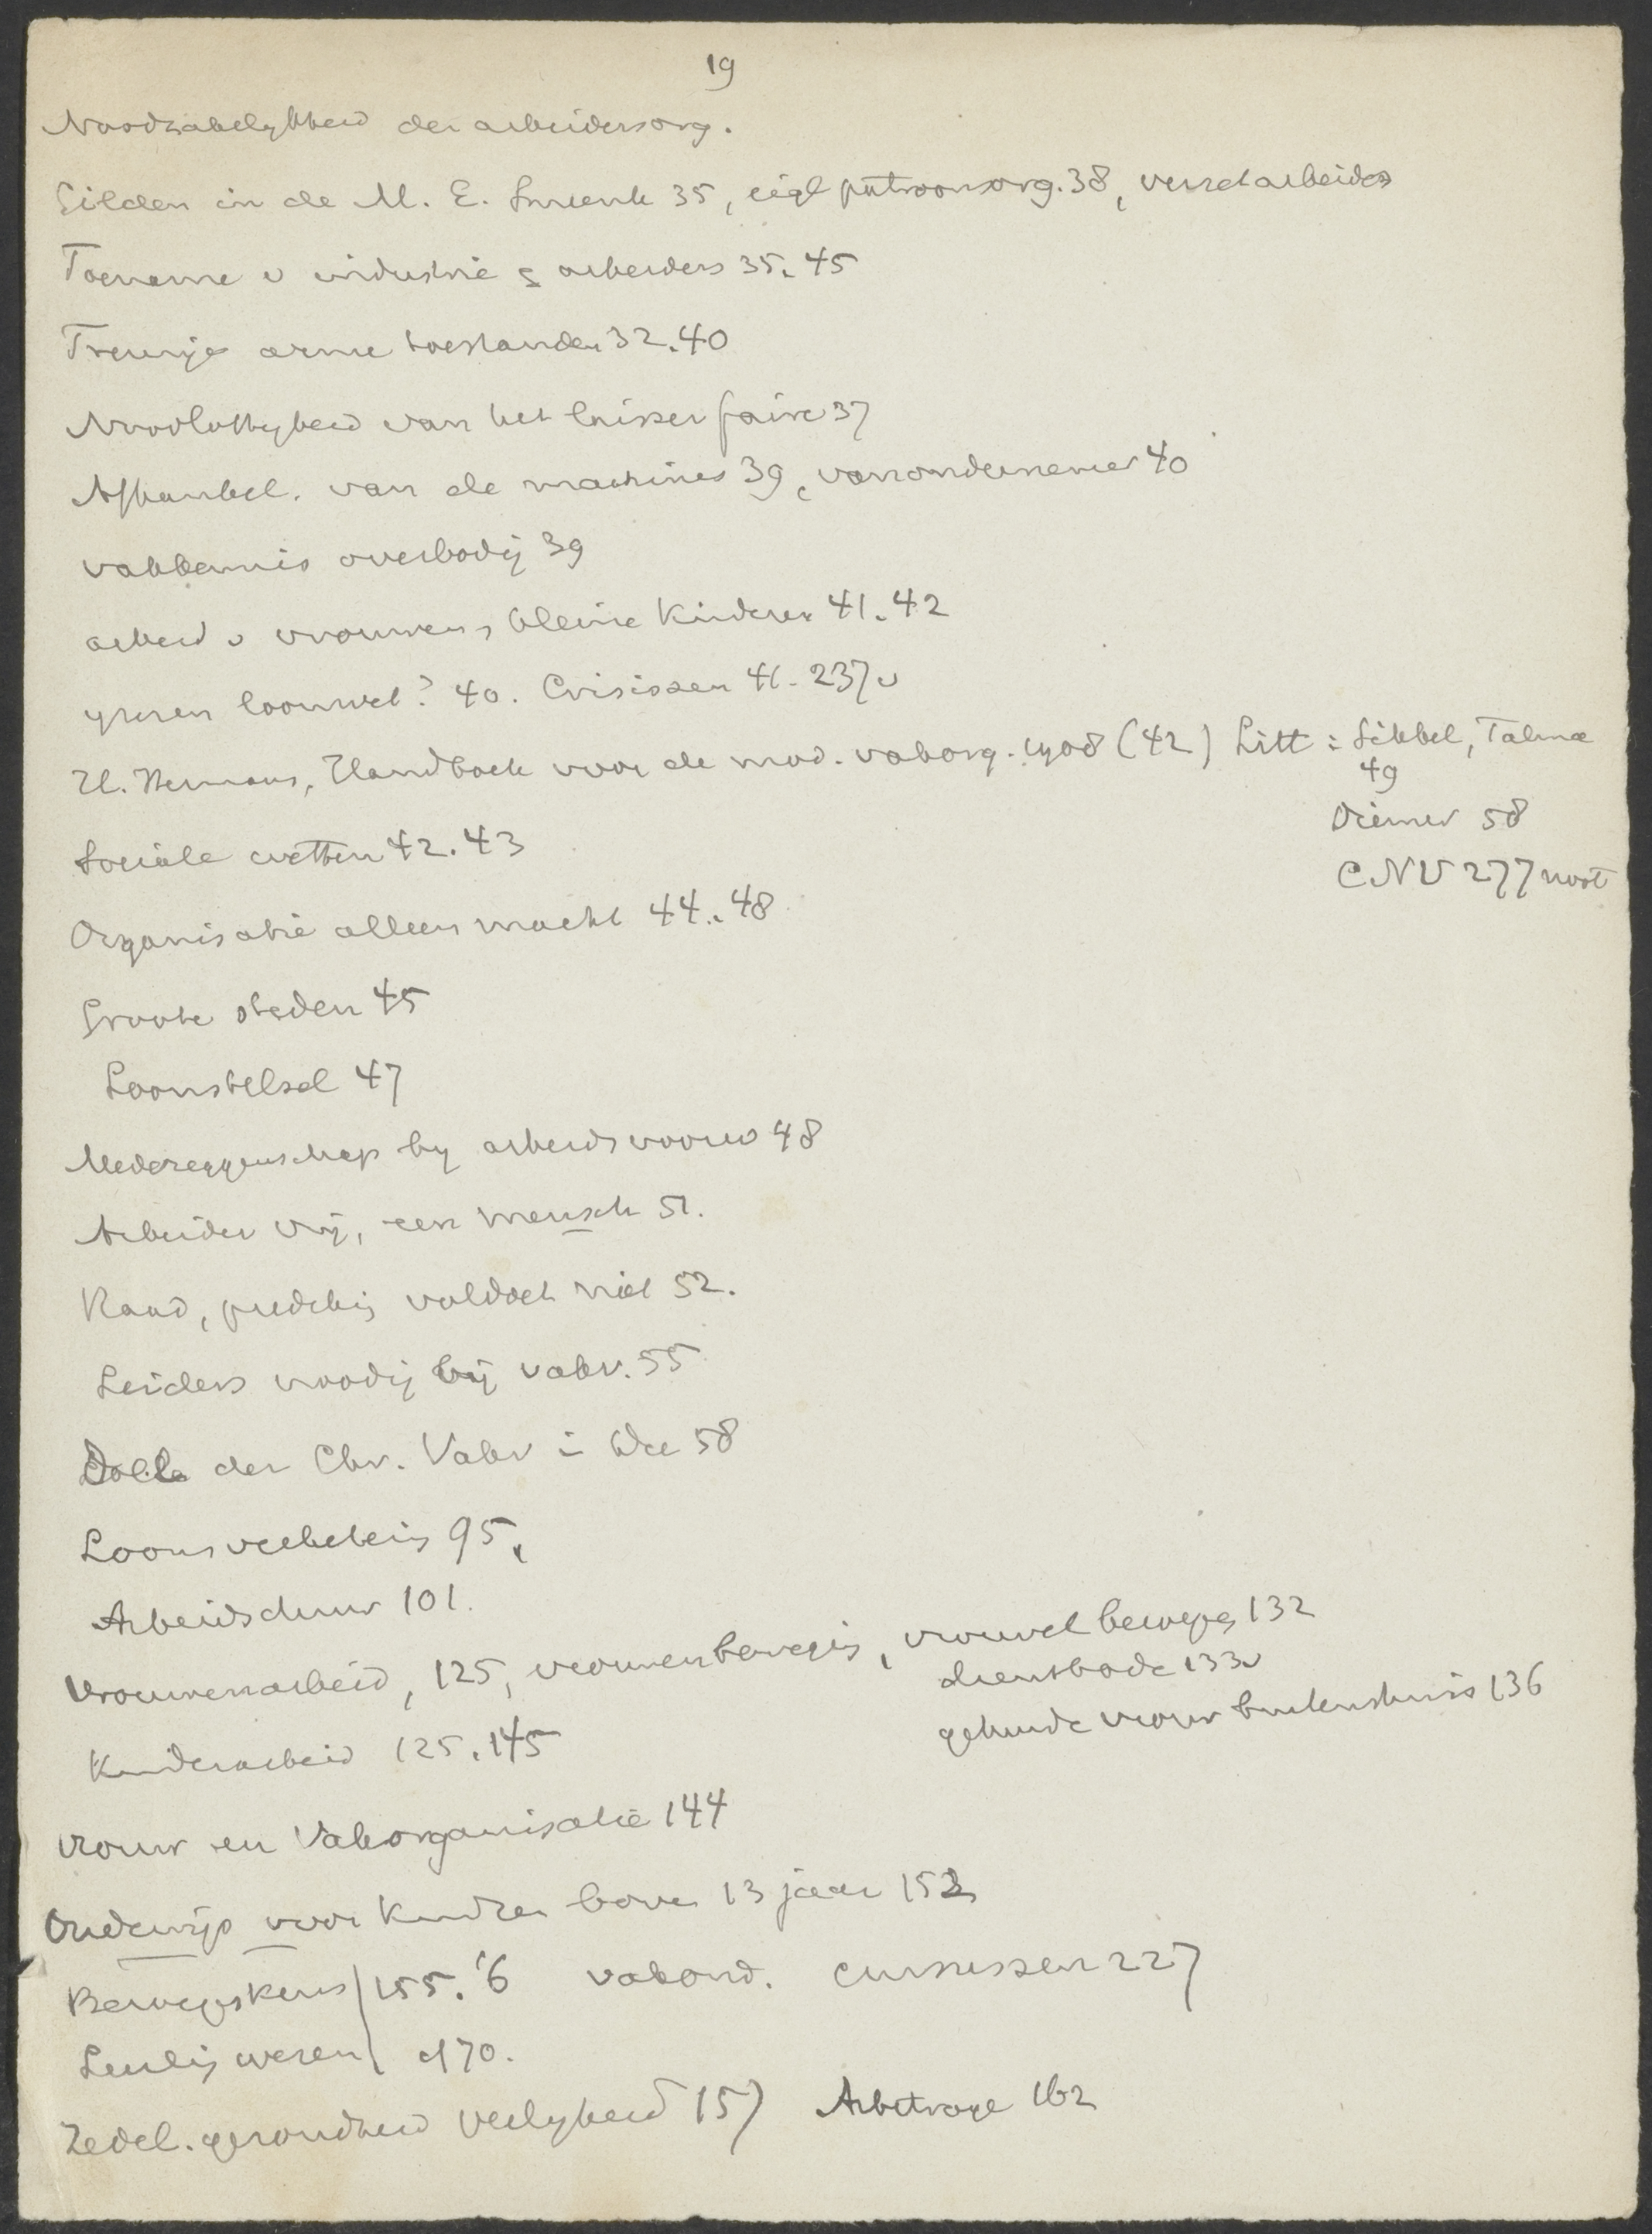 19
Noodzakelykheid der arbeidersorg.
Gilden in de M. E. Smeenk 35, eigl patroonsorg. 38, verzet arbeiders
Toename v industrie & arbeiders 35. 45
Treurige arme toestanden 32. 40
Noodlottigheid van het laisser faire 37
Afhankel. van de machines 39, van ondernemer 40
vakkennis overbodig 39
arbeid v vrouwen, kleine kinderen 41. 42
yzeren loonwet? 40. Crisissen 41 - 237v
H. Hermans, Handboek voor de mod. vakorg. 1908 (42) Litt: Sikkel, Talma
49
Diemer 58
CNV 277 noot
Sociale wetten 42. 43
Organisatie alleen macht 44. 48
Groote steden 45
Loonstelsel 47
Medezeggenschap by arbeidsvoorw 48
Arbeider vrij, een mensch 51.
Raad, prediking voldoet niet 52.
Leiders noodig bij vakv. 55
Doel der Chr. Vakv 58
Loonsverbetering 95,
Arbeidsduur 101.
Vrouwenarbeid, 125, vrouwenbeweging, vrouwel beroepen 132
dienstbode 133v
gehuwde vrouw buitenshuis 136
Kinderarbeid 125. 145
Vrouw en Vakorganisatie 144
Onderwijs voor kinderen boven 13 jaar 152
Beroepskeus 155. '6 vakond. cursussen 227
Leerlingwezen 170.
Zedel. gezondheid Veiligheid 157 Arbitrage 162